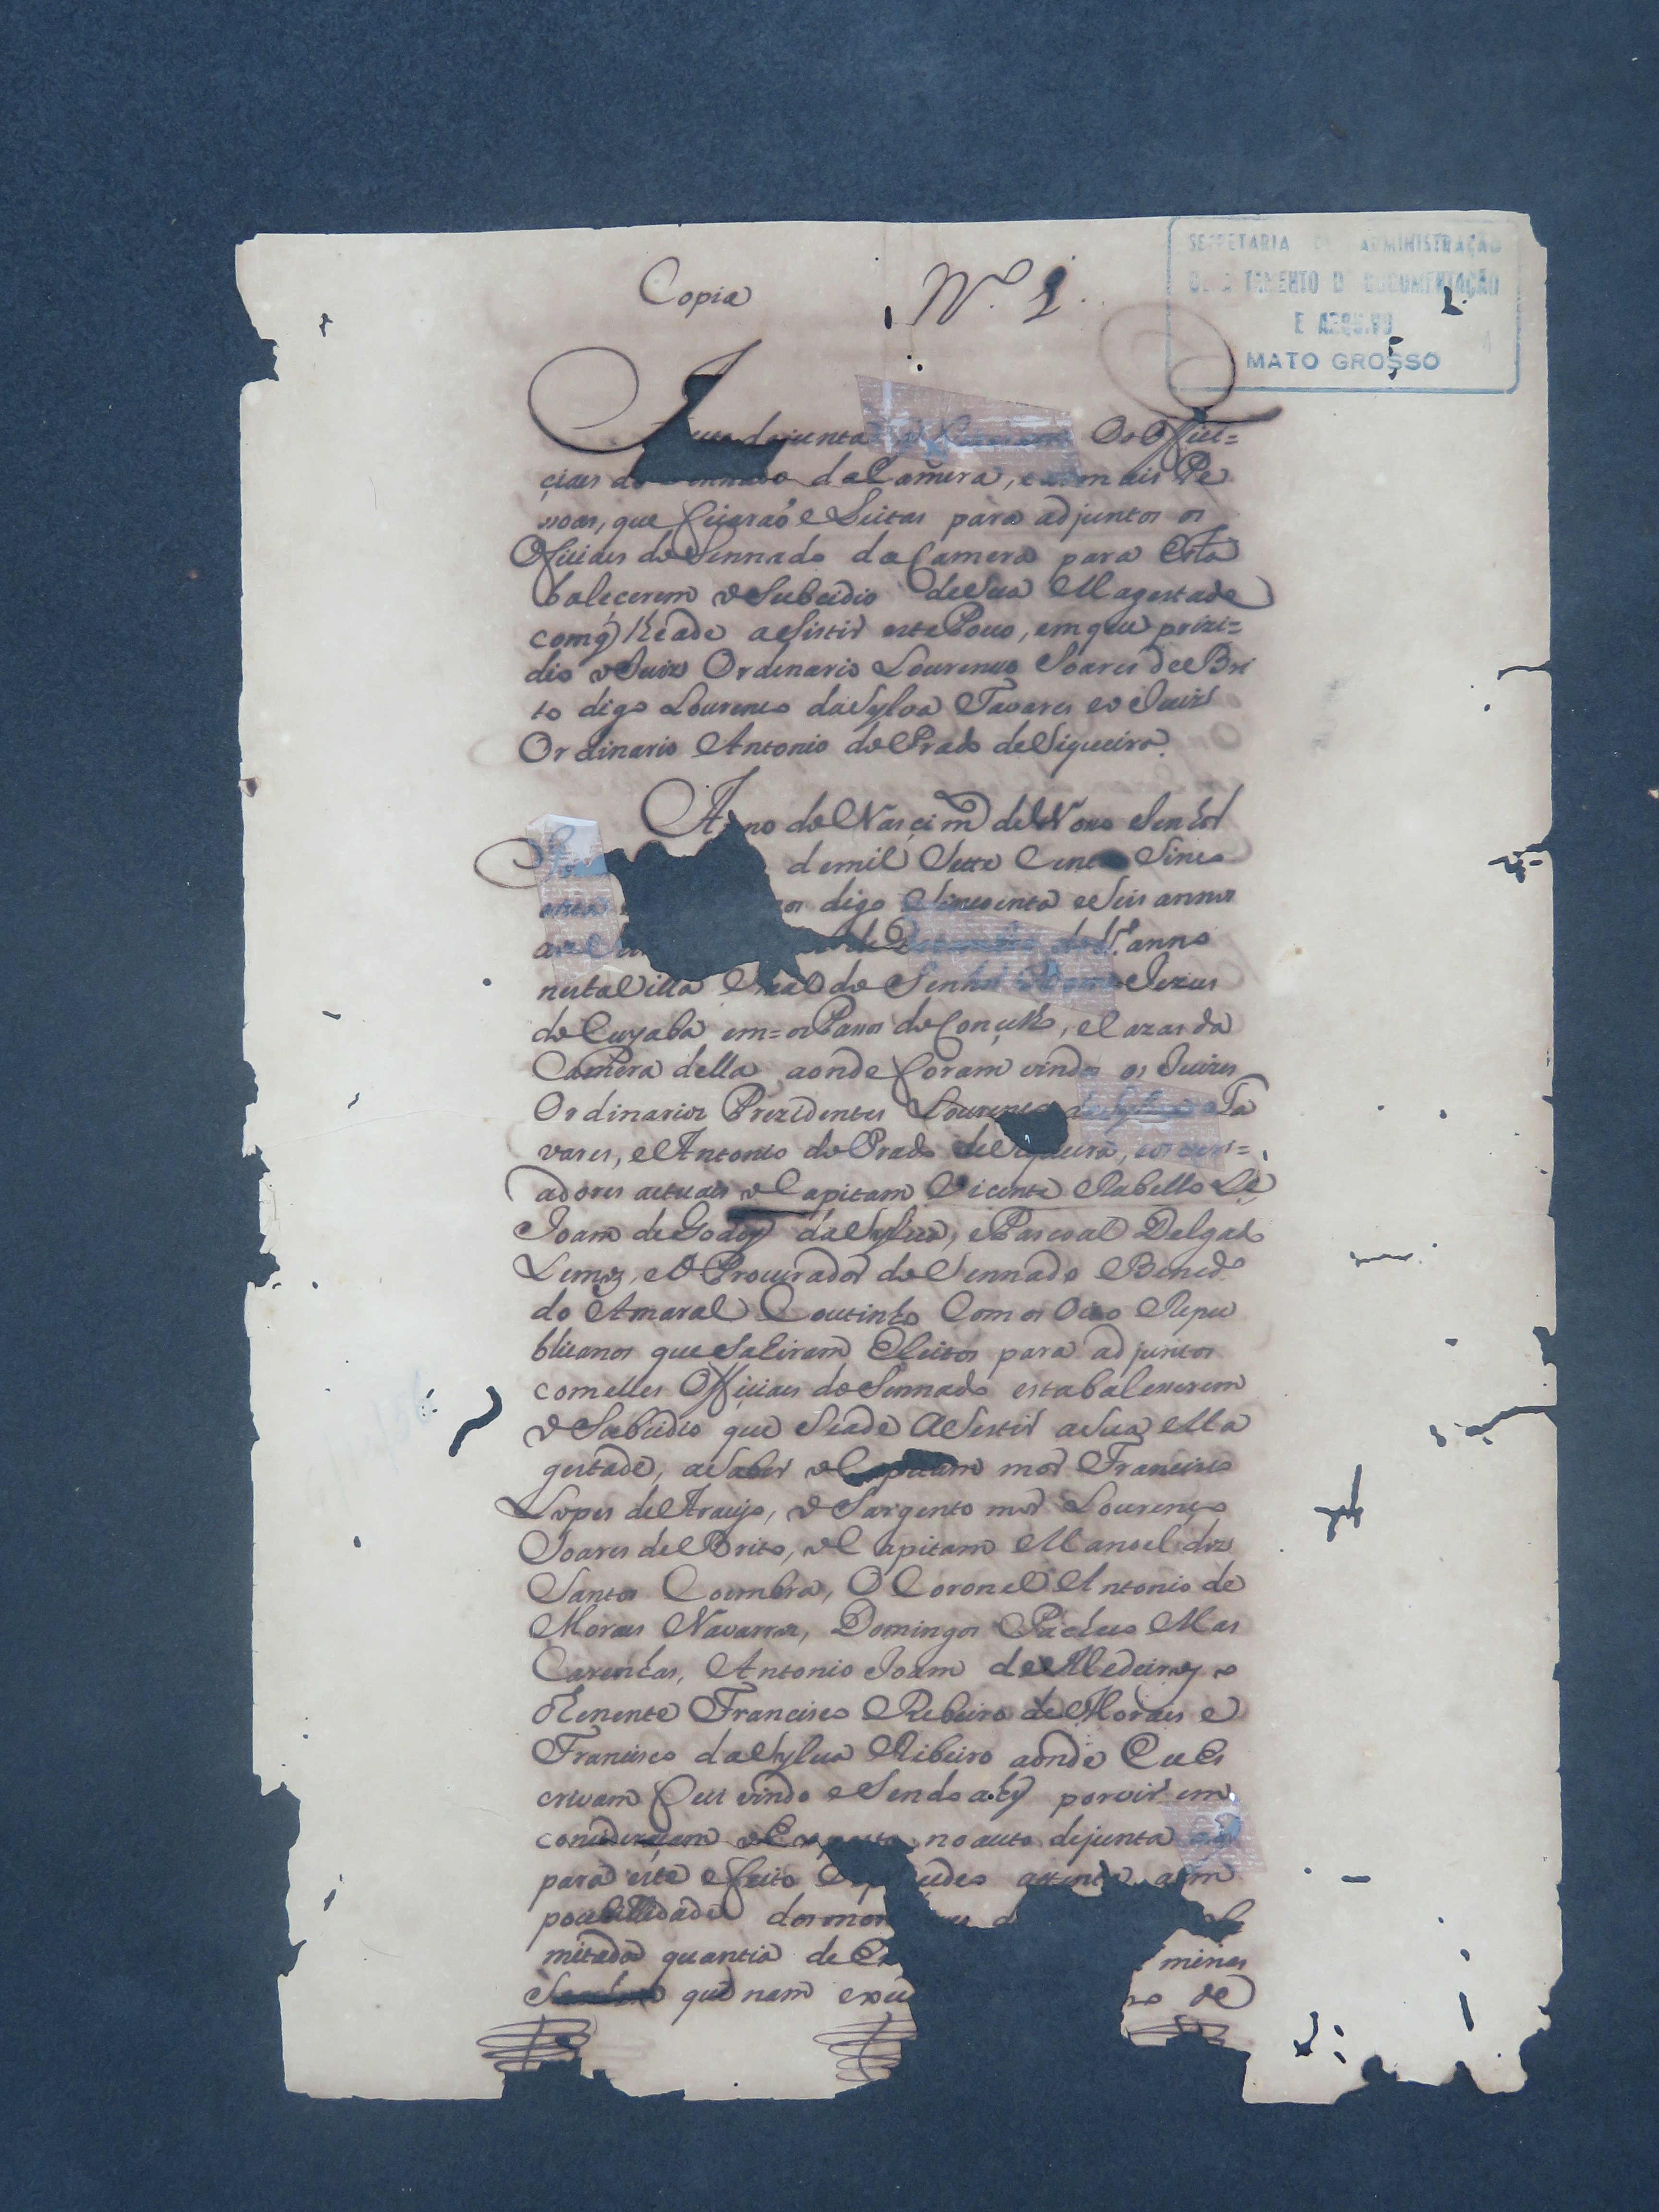 Copia
Nº. 1.
SECRETARIA DE ADMINISTRAÇÃO
DEPARTAMENTO DE DOCUMENTAÇÃO
E ARQUIVO
MATO GROSSO
dejunta Os Offici=
ciaes do Sennado da Camera, e mais Pe
soas, que ficaraõ eleitas para adjuntos os
Oficiaes do Sennado da Camera para Esta
balecerem o Subcidio de Sua Magestade
comq̃ Heade asistir este Povo, emque prizi=
dio o Juiz Ordinario Lourenço Soares de Bri
to digo Lourenço da Sylva Tavares eo Juiz
Ordinario Antonio do Prado de Siqueira.
Anno do Nascim̃ de Noso Senhor
de mil Sette Cento Sinco
digo Sincoenta e Seis annos
de anno
nesta Villa Real do Senhor Jezus
do Cuyabá em os Paços do Concelho, e cazas da
Camera della aonde foram vindo os Juizes
Ordinarios Prezidentes Lourenço da Ta
vares, e Antonio do Prado de Siqueira,
adores actuaes o Capitam Vicente Rabello Le
Joam de Godoy da Sylva, e Pascoal Delgado
Lemos, e O Procurador do Sennado Bened.º
do Amaral Coutinho Com os Oito Repu
blicanos que Sahiram Eleitos para adjuntos
comelles Officiaes do Sennado estabalexerem
o Subcidio que Seade Asestir a Sua Ma
gestade, a Saber o Capitam mor Francisco
Lopes de Araujo, o Sargento mor Lourenço
Soares de Brito, o Capitam Manoel dos
Santos Coimbra, O Coronel Antonio de
Moraes Navarros, Domingos Pacheco Mas
Carenhas, Antonio Joam de Medeiros o
Tenente Francisco Ribeiro de Moraes e
Francisco da Sylva Ribeiro aonde Eu Es
crivam fui vindo e Sendo ahy por vir em
consideraçam o Exposto no auto dejunta
para este efeito atenta aim
pocibillidade dos mora
mitada quantia de minas
que nam exci de